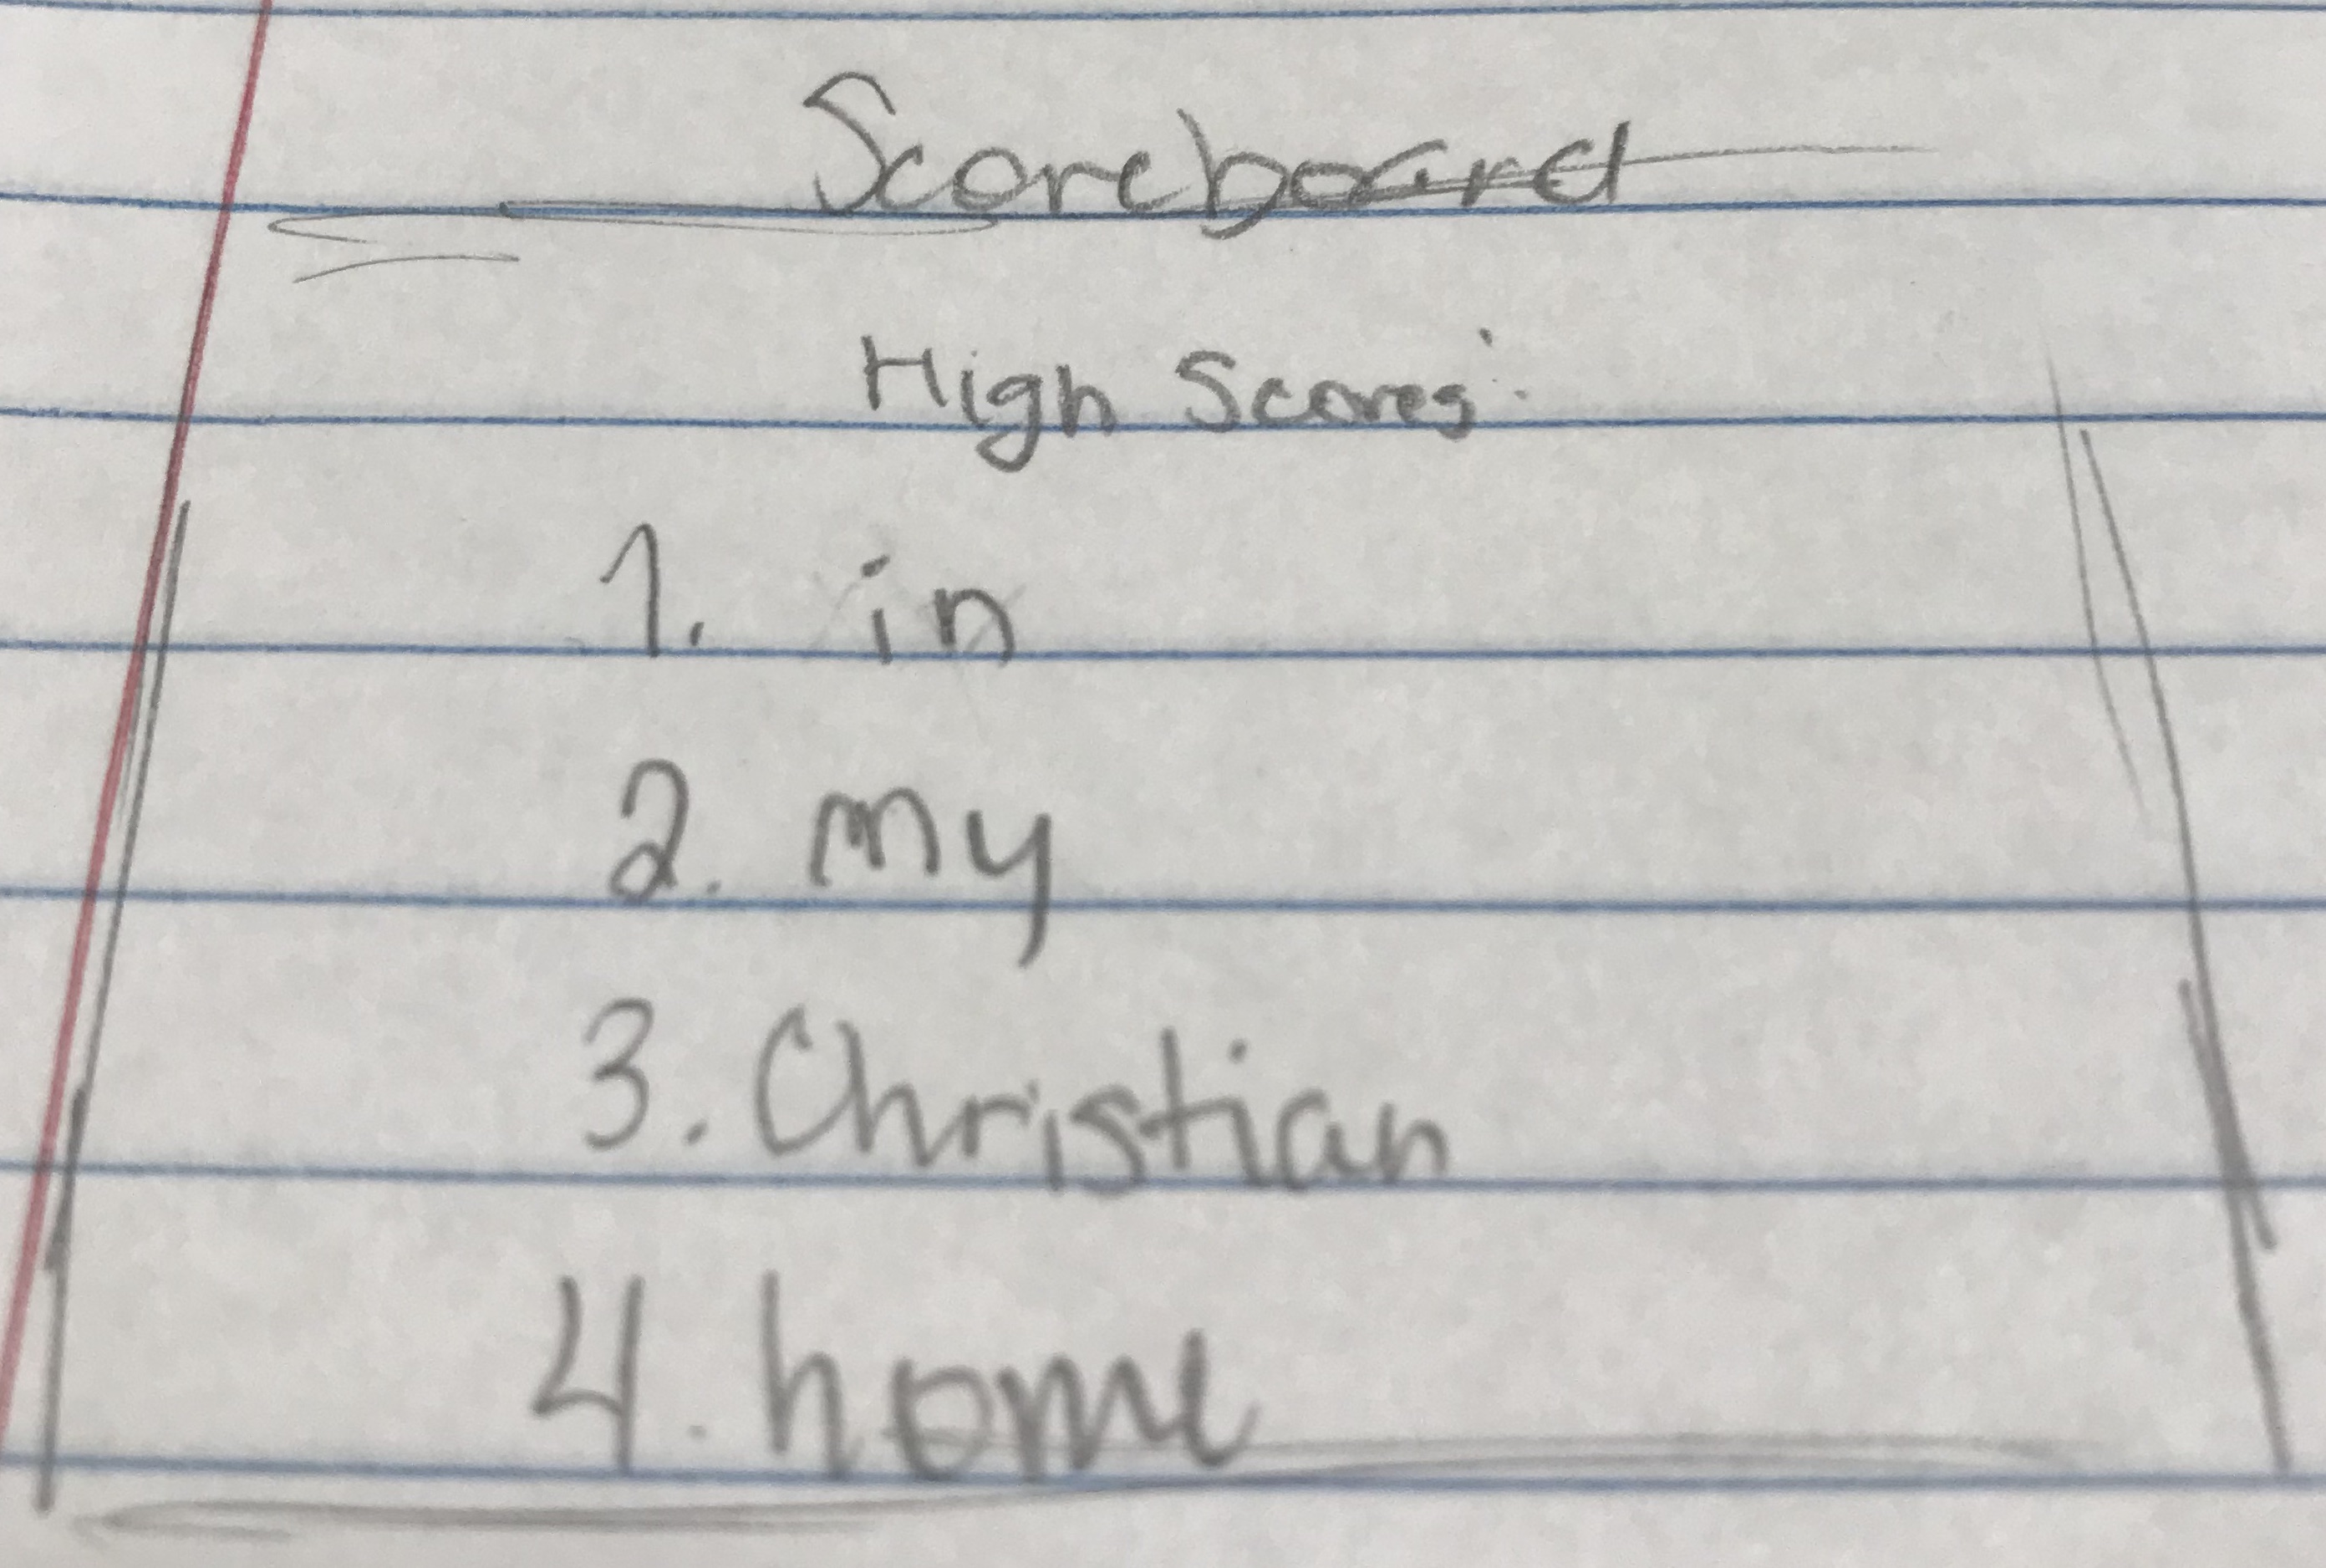 Scoreboard
High Scores:
1. in
2. my
3. Christian
4. home